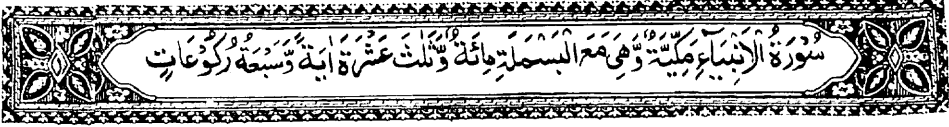 سُوْرَةُ الْاَنْبِيَآءِ مَكِّيَّةٌ وَّهِىَ مَعَ الْبَسْمَلَةِ مِائَةٌ وَّثَلٰثَ عَشْرَةَ اٰيَةً وَّسَبْعَةُ رُكُوْعَاتٍ